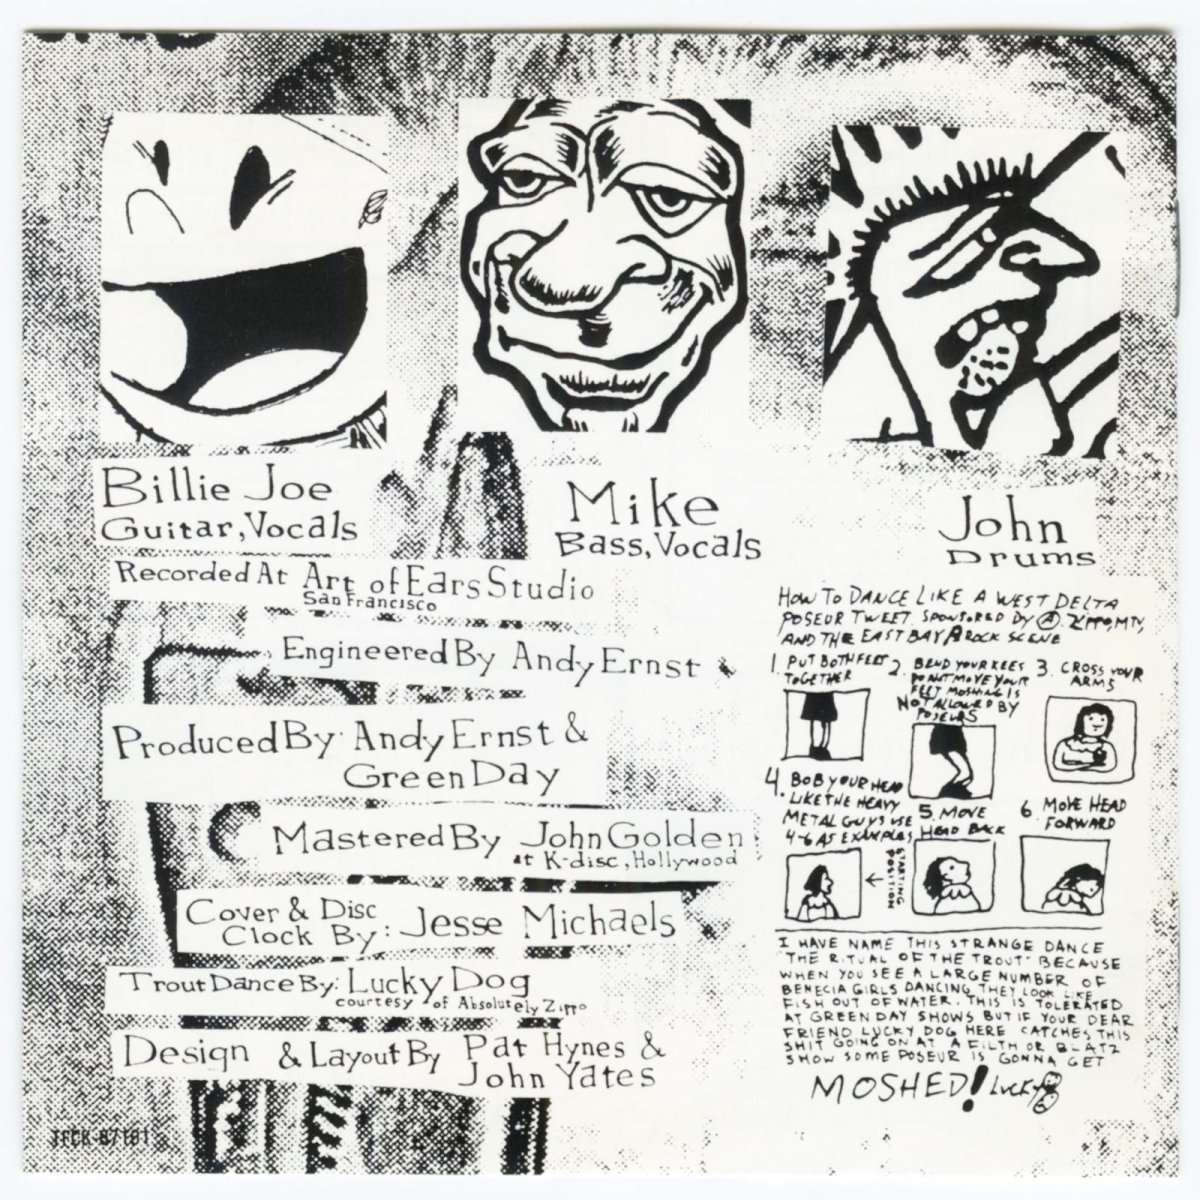 Billie Joe
Guitar, Vocals
Mike
Bass, Vocals
John
Drums
Recorded At Art of Ears Studio
San Francisco
Engineered By Andy Ernst
Produced By Andy Ernst &
Green Day
Mastered By John Golden
at K-disc, Hollywood
Cover & Disc
Clock By: Jesse Michaels
Trout Dance By: Lucky Dog
courtesy of Absolutely Zippo
Design & Layout By Pat Hynes &
John Yates
TFCK-87161
HOW TO DANCE LIKE A WEST DELTA
POSEUR TWEET SPONSORED BY A. ZIPPO, MTV,
AND THE EAST BAY ROCK SCENE
1. PUT BOTH FEET
TOGETHER
2. BEND YOUR KEES
DO NOT MOVE YOUR
FEET MOSHING IS
NOT ALLOWED BY
POSEURS
3. CROSS YOUR
ARMS
4. BOB YOUR HEAD
LIKE THE HEAVY
METAL GUYS USE
4-6 AS EXAMPLES
STARTING
POSITION
5. MOVE
HEAD BACK
6. MOVE HEAD
FORWARD
I HAVE NAME THIS STRANGE DANCE
"THE RITUAL OF THE TROUT" BECAUSE
WHEN YOU SEE A LARGE NUMBER OF
BENECIA GIRLS DANCING THEY LOOK LIKE
FISH OUT OF WATER. THIS IS TOLERATED
AT GREEN DAY SHOWS BUT IF YOUR DEAR
FRIEND LUCKY DOG HERE CATCHES THIS
SHIT GOING ON AT A FILTH OR BLATZ
SHOW SOME POSEUR IS GONNA GET
MOSHED! LUCKY